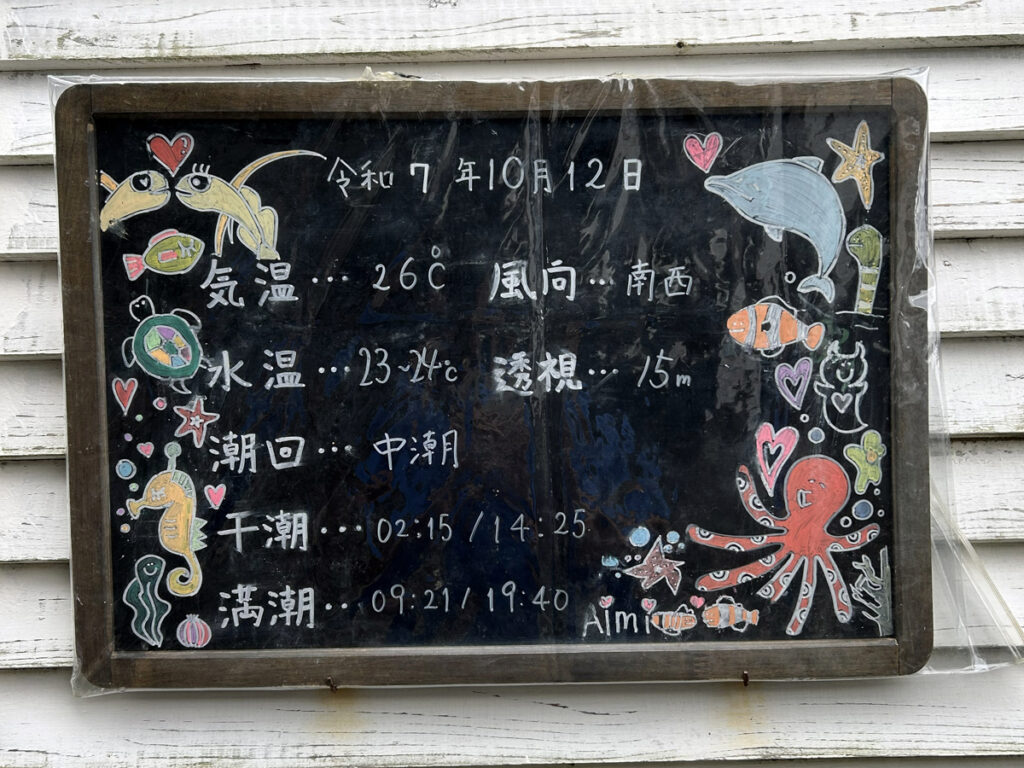 令和7年10月12日
気温…26℃ 風向…南西
水温…23~24℃ 透視…15m
潮回…中潮
干潮…02:15/14:25
満潮…09:21/19:40
Aimi